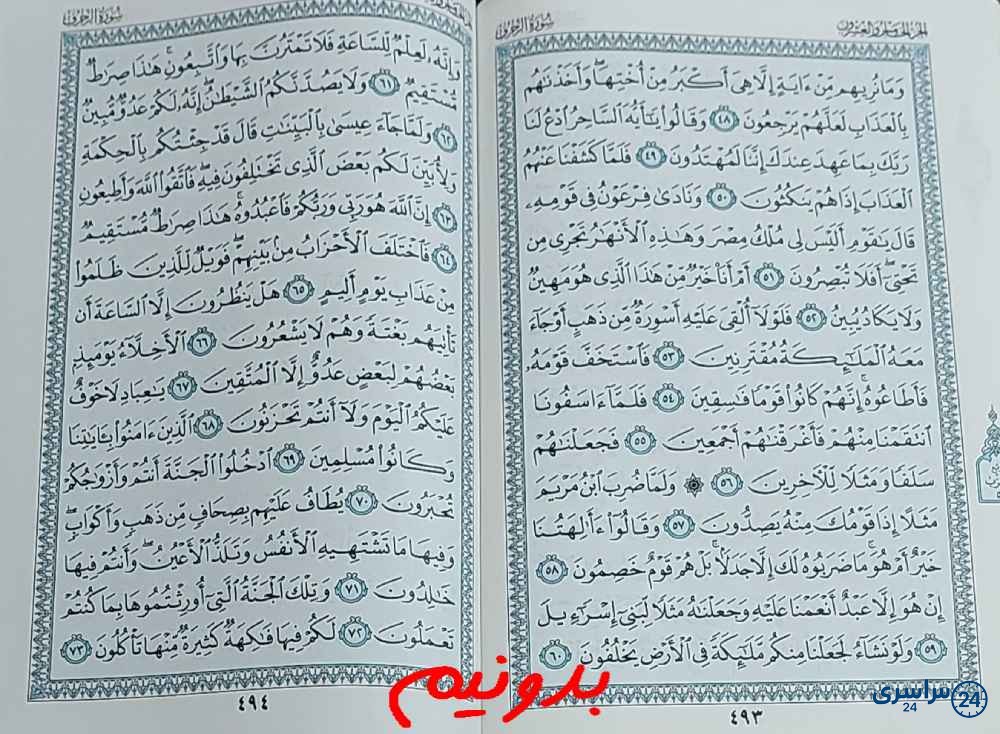 الجزء الخامس والعشرون
سورة الزخرف
وَمَا نُرِيهِم مِّنْ ءَايَةٍ إِلَّا هِىَ أَكْبَرُ مِنْ أُخْتِهَا ۖ وَأَخَذْنَٰهُم
بِٱلْعَذَابِ لَعَلَّهُمْ يَرْجِعُونَ ٤٨ وَقَالُوا۟ يَٰٓأَيُّهَ ٱلسَّاحِرُ ٱدْعُ لَنَا
رَبَّكَ بِمَا عَهِدَ عِندَكَ إِنَّنَا لَمُهْتَدُونَ ٤٩ فَلَمَّا كَشَفْنَا عَنْهُمُ
ٱلْعَذَابَ إِذَا هُمْ يَنكُثُونَ ٥٠ وَنَادَىٰ فِرْعَوْنُ فِى قَوْمِهِۦ
قَالَ يَٰقَوْمِ أَلَيْسَ لِى مُلْكُ مِصْرَ وَهَٰذِهِ ٱلْأَنْهَٰرُ تَجْرِى مِن
تَحْتِىٓ ۖ أَفَلَا تُبْصِرُونَ ٥١ أَمْ أَنَا۠ خَيْرٌ مِّنْ هَٰذَا ٱلَّذِى هُوَ مَهِينٌ
وَلَا يَكَادُ يُبِينُ ٥٢ فَلَوْلَآ أُلْقِىَ عَلَيْهِ أَسْوِرَةٌ مِّن ذَهَبٍ أَوْ جَآءَ
مَعَهُ ٱلْمَلَٰٓئِكَةُ مُقْتَرِنِينَ ٥٣ فَٱسْتَخَفَّ قَوْمَهُۥ
فَأَطَاعُوهُ ۚ إِنَّهُمْ كَانُوا۟ قَوْمًا فَٰسِقِينَ ٥٤ فَلَمَّآ ءَاسَفُونَا
ٱنتَقَمْنَا مِنْهُمْ فَأَغْرَقْنَٰهُمْ أَجْمَعِينَ ٥٥ فَجَعَلْنَٰهُمْ
سَلَفًا وَمَثَلًا لِّلْـَٔاخِرِينَ ٥٦ ۞ وَلَمَّا ضُرِبَ ٱبْنُ مَرْيَمَ
مَثَلًا إِذَا قَوْمُكَ مِنْهُ يَصِدُّونَ ٥٧ وَقَالُوٓا۟ ءَأَٰلِهَتُنَا
خَيْرٌ أَمْ هُوَ ۚ مَا ضَرَبُوهُ لَكَ إِلَّا جَدَلًۢا ۚ بَلْ هُمْ قَوْمٌ خَصِمُونَ ٥٨
إِنْ هُوَ إِلَّا عَبْدٌ أَنْعَمْنَا عَلَيْهِ وَجَعَلْنَٰهُ مَثَلًا لِّبَنِىٓ إِسْرَٰٓءِيلَ
٥٩ وَلَوْ نَشَآءُ لَجَعَلْنَا مِنكُم مَّلَٰٓئِكَةً فِى ٱلْأَرْضِ يَخْلُفُونَ ٦٠
٤٩٣
سورة الزخرف
وَإِنَّهُۥ لَعِلْمٌ لِّلسَّاعَةِ فَلَا تَمْتَرُنَّ بِهَا وَٱتَّبِعُونِ ۚ هَٰذَا صِرَٰطٌ
مُّسْتَقِيمٌ ٦١ وَلَا يَصُدَّنَّكُمُ ٱلشَّيْطَٰنُ ۖ إِنَّهُۥ لَكُمْ عَدُوٌّ مُّبِينٌ
٦٢ وَلَمَّا جَآءَ عِيسَىٰ بِٱلْبَيِّنَٰتِ قَالَ قَدْ جِئْتُكُم بِٱلْحِكْمَةِ
وَلِأُبَيِّنَ لَكُم بَعْضَ ٱلَّذِى تَخْتَلِفُونَ فِيهِ ۖ فَٱتَّقُوا۟ ٱللَّهَ وَأَطِيعُونِ
٦٣ إِنَّ ٱللَّهَ هُوَ رَبِّى وَرَبُّكُمْ فَٱعْبُدُوهُ ۚ هَٰذَا صِرَٰطٌ مُّسْتَقِيمٌ
٦٤ فَٱخْتَلَفَ ٱلْأَحْزَابُ مِنۢ بَيْنِهِمْ ۖ فَوَيْلٌ لِّلَّذِينَ ظَلَمُوا۟
مِنْ عَذَابِ يَوْمٍ أَلِيمٍ ٦٥ هَلْ يَنظُرُونَ إِلَّا ٱلسَّاعَةَ أَن
تَأْتِيَهُم بَغْتَةً وَهُمْ لَا يَشْعُرُونَ ٦٦ ٱلْأَخِلَّآءُ يَوْمَئِذٍۭ
بَعْضُهُمْ لِبَعْضٍ عَدُوٌّ إِلَّا ٱلْمُتَّقِينَ ٦٧ يَٰعِبَادِ لَا خَوْفٌ
عَلَيْكُمُ ٱلْيَوْمَ وَلَآ أَنتُمْ تَحْزَنُونَ ٦٨ ٱلَّذِينَ ءَامَنُوا۟ بِـَٔايَٰتِنَا
وَكَانُوا۟ مُسْلِمِينَ ٦٩ ٱدْخُلُوا۟ ٱلْجَنَّةَ أَنتُمْ وَأَزْوَٰجُكُمْ
تُحْبَرُونَ ٧٠ يُطَافُ عَلَيْهِم بِصِحَافٍ مِّن ذَهَبٍ وَأَكْوَابٍ ۖ
وَفِيهَا مَا تَشْتَهِيهِ ٱلْأَنفُسُ وَتَلَذُّ ٱلْأَعْيُنُ ۖ وَأَنتُمْ فِيهَا
خَٰلِدُونَ ٧١ وَتِلْكَ ٱلْجَنَّةُ ٱلَّتِىٓ أُورِثْتُمُوهَا بِمَا كُنتُمْ
تَعْمَلُونَ ٧٢ لَكُمْ فِيهَا فَٰكِهَةٌ كَثِيرَةٌ مِّنْهَا تَأْكُلُونَ ٧٣
٤٩٤
بدونیم
سراسری 24
24